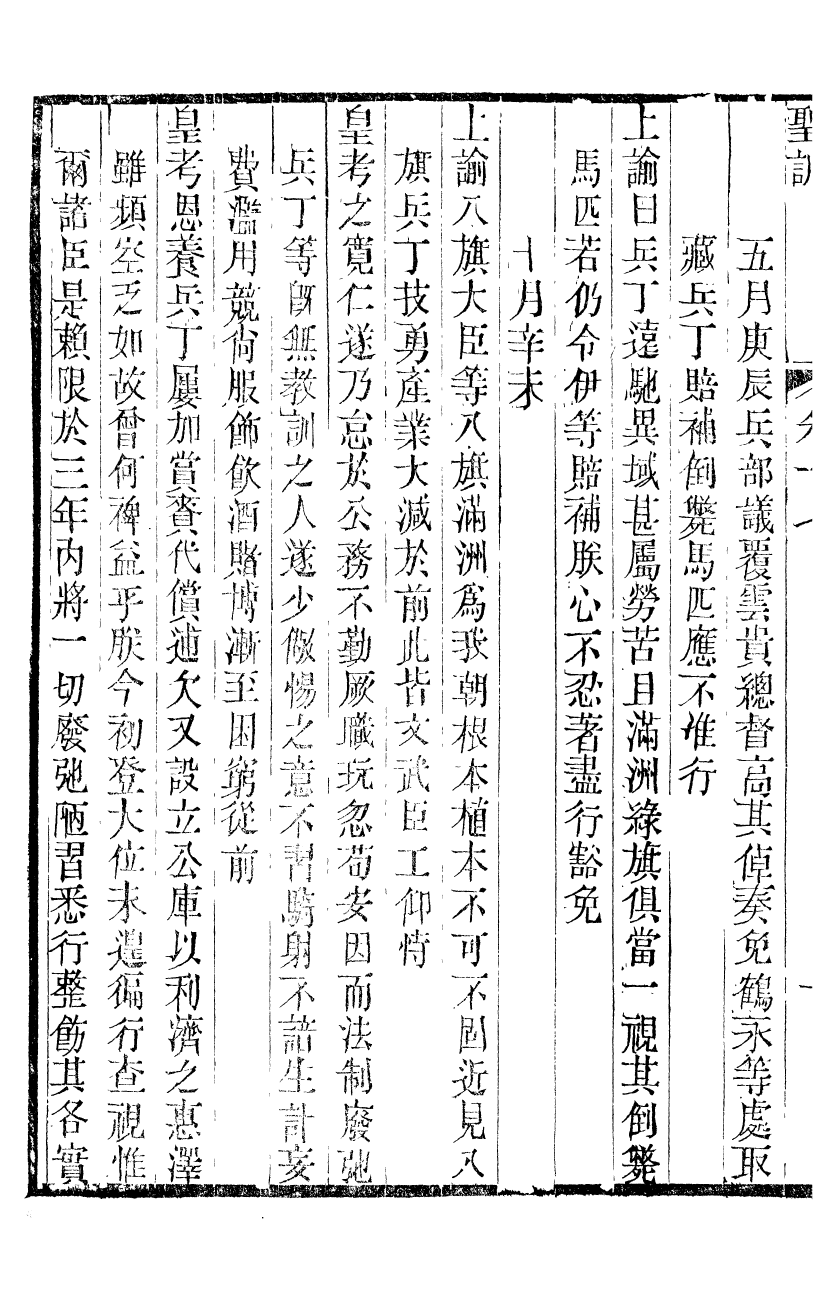 聖訓
五月庚辰兵部議覆雲貴總督高其倬奏免鶴永等處取
藏兵丁賠補倒斃馬匹應不准行
上諭曰兵丁遠馳異域甚屬勞苦且滿洲綠旗俱當一視其倒斃
馬匹若仍令伊等賠補朕心不忍著盡行豁免
十月辛未
上諭八旗大臣等八旗滿洲為我朝根本植本不可不固近見八
旗兵丁技勇產業大減於前此皆文武臣工仰恃
皇考之寬仁遂乃怠於公務不勤厥職玩忽苟安因而法制廢弛
兵丁等旣無教訓之人遂少儆惕之意不習騎射不諳生計妄
費濫用競尙服飾飲酒賭博漸至困窮從前
皇考恩養兵丁屢加賞賚代償逋欠又設立公庫以利濟之惠澤
雖頻空乏如故曾何裨益乎朕今初登大位未遑徧行查視惟
爾諸臣是賴限於三年內將一切廢弛陋習悉行整飭其各實